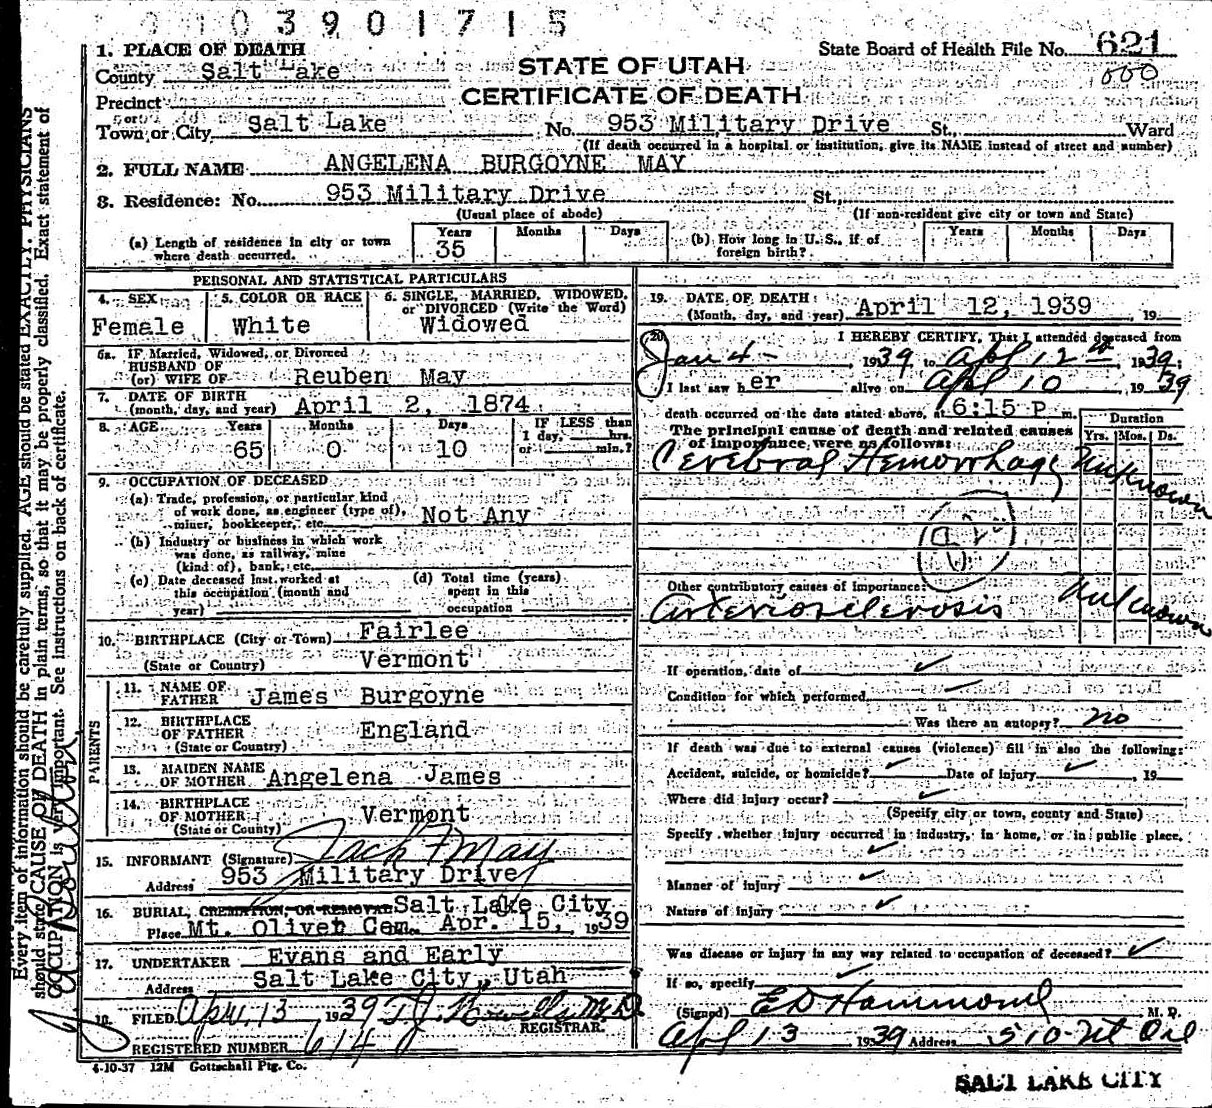 0 1 0 3 9 0 1 7 1 5
1. PLACE OF DEATH
State Board of Health File No. 621
County Salt Lake
STATE OF UTAH
000
Precinct
CERTIFICATE OF DEATH
or
Town or City Salt Lake No. 953 Military Drive St., Ward
(If death occurred in a hospital or institution, give its NAME instead of street and number)
2. FULL NAME ANGELENA BURGOYNE MAY
3. Residence: No. 953 Military Drive St.,
(Usual place of abode) (If non-resident give city or town and State)
(a) Length of residence in city or town where death occurred. Years 35 Months Days
(b) How long in U. S., if of foreign birth? Years Months Days
PERSONAL AND STATISTICAL PARTICULARS
4. SEX Female
5. COLOR OR RACE White
6. SINGLE, MARRIED, WIDOWED, or DIVORCED (Write the Word) Widowed
6a. IF Married, Widowed, or Divorced
HUSBAND OF
(or) WIFE OF Reuben May
7. DATE OF BIRTH
(month, day, and year) April 2, 1874
8. AGE Years 65 Months 0 Days 10 IF LESS than 1 day, hrs. or min.?
9. OCCUPATION OF DECEASED
(a) Trade, profession, or particular kind
of work done, as engineer (type of),
miner, bookkeeper, etc. Not Any
(b) Industry or business in which work
was done, as railway, mine
(kind of), bank, etc.
(c) Date deceased last worked at
this occupation (month and
year)
(d) Total time (years)
spent in this
occupation
10. BIRTHPLACE (City or Town) Fairlee
(State or Country) Vermont
PARENTS
11. NAME OF FATHER James Burgoyne
12. BIRTHPLACE OF FATHER England
(State or Country)
13. MAIDEN NAME OF MOTHER Angelena James
14. BIRTHPLACE OF MOTHER Vermont
(State or County)
15. INFORMANT (Signature) Jack F May
Address 953 Military Drive
16. BURIAL, CREMATION, OR REMOVAL Salt Lake City
Place Mt. Olivet Cem. Apr. 15, 1939
17. UNDERTAKER Evans and Early
Address Salt Lake City, Utah
18. FILED Apr. 13 1939 T.J. Howells M.D.
REGISTRAR.
REGISTERED NUMBER 614
4-10-37 12M Gottschall Ptg. Co.
19. DATE OF DEATH:
(Month, day, and year) April 12, 1939 , 19
20 I HEREBY CERTIFY, That I attended deceased from
Jan 4 - 1939 to Apl 12th 1939;
I last saw her alive on Apl 10 1939
death occurred on the date stated above, at 6:15 P m.
The principal cause of death and related causes
of importance were as follows:
Duration
Yrs. Mos. Ds.
Cerebral Hemorrhage Unknown
Other contributory causes of importance:
Arteriosclerosis Unknown
If operation, date of
Condition for which performed
Was there an autopsy? no
If death was due to external causes (violence) fill in also the following:
Accident, suicide, or homicide? Date of injury , 19
Where did injury occur?
(Specify city or town, county and State)
Specify whether injury occurred in industry, in home, or in public place.
Manner of injury
Nature of injury
Was disease or injury in any way related to occupation of deceased?
If so, specify
(Signed) E D Hammond M. D.
Apl 13 1939 Address 510-
SALT LAKE CITY
Every item of information should be carefully supplied. AGE should be stated EXACTLY. PHYSICIANS
should state CAUSE OF DEATH in plain terms, so that it may be properly classified. Exact statement of
OCCUPATION is very important. See instructions on back of certificate.